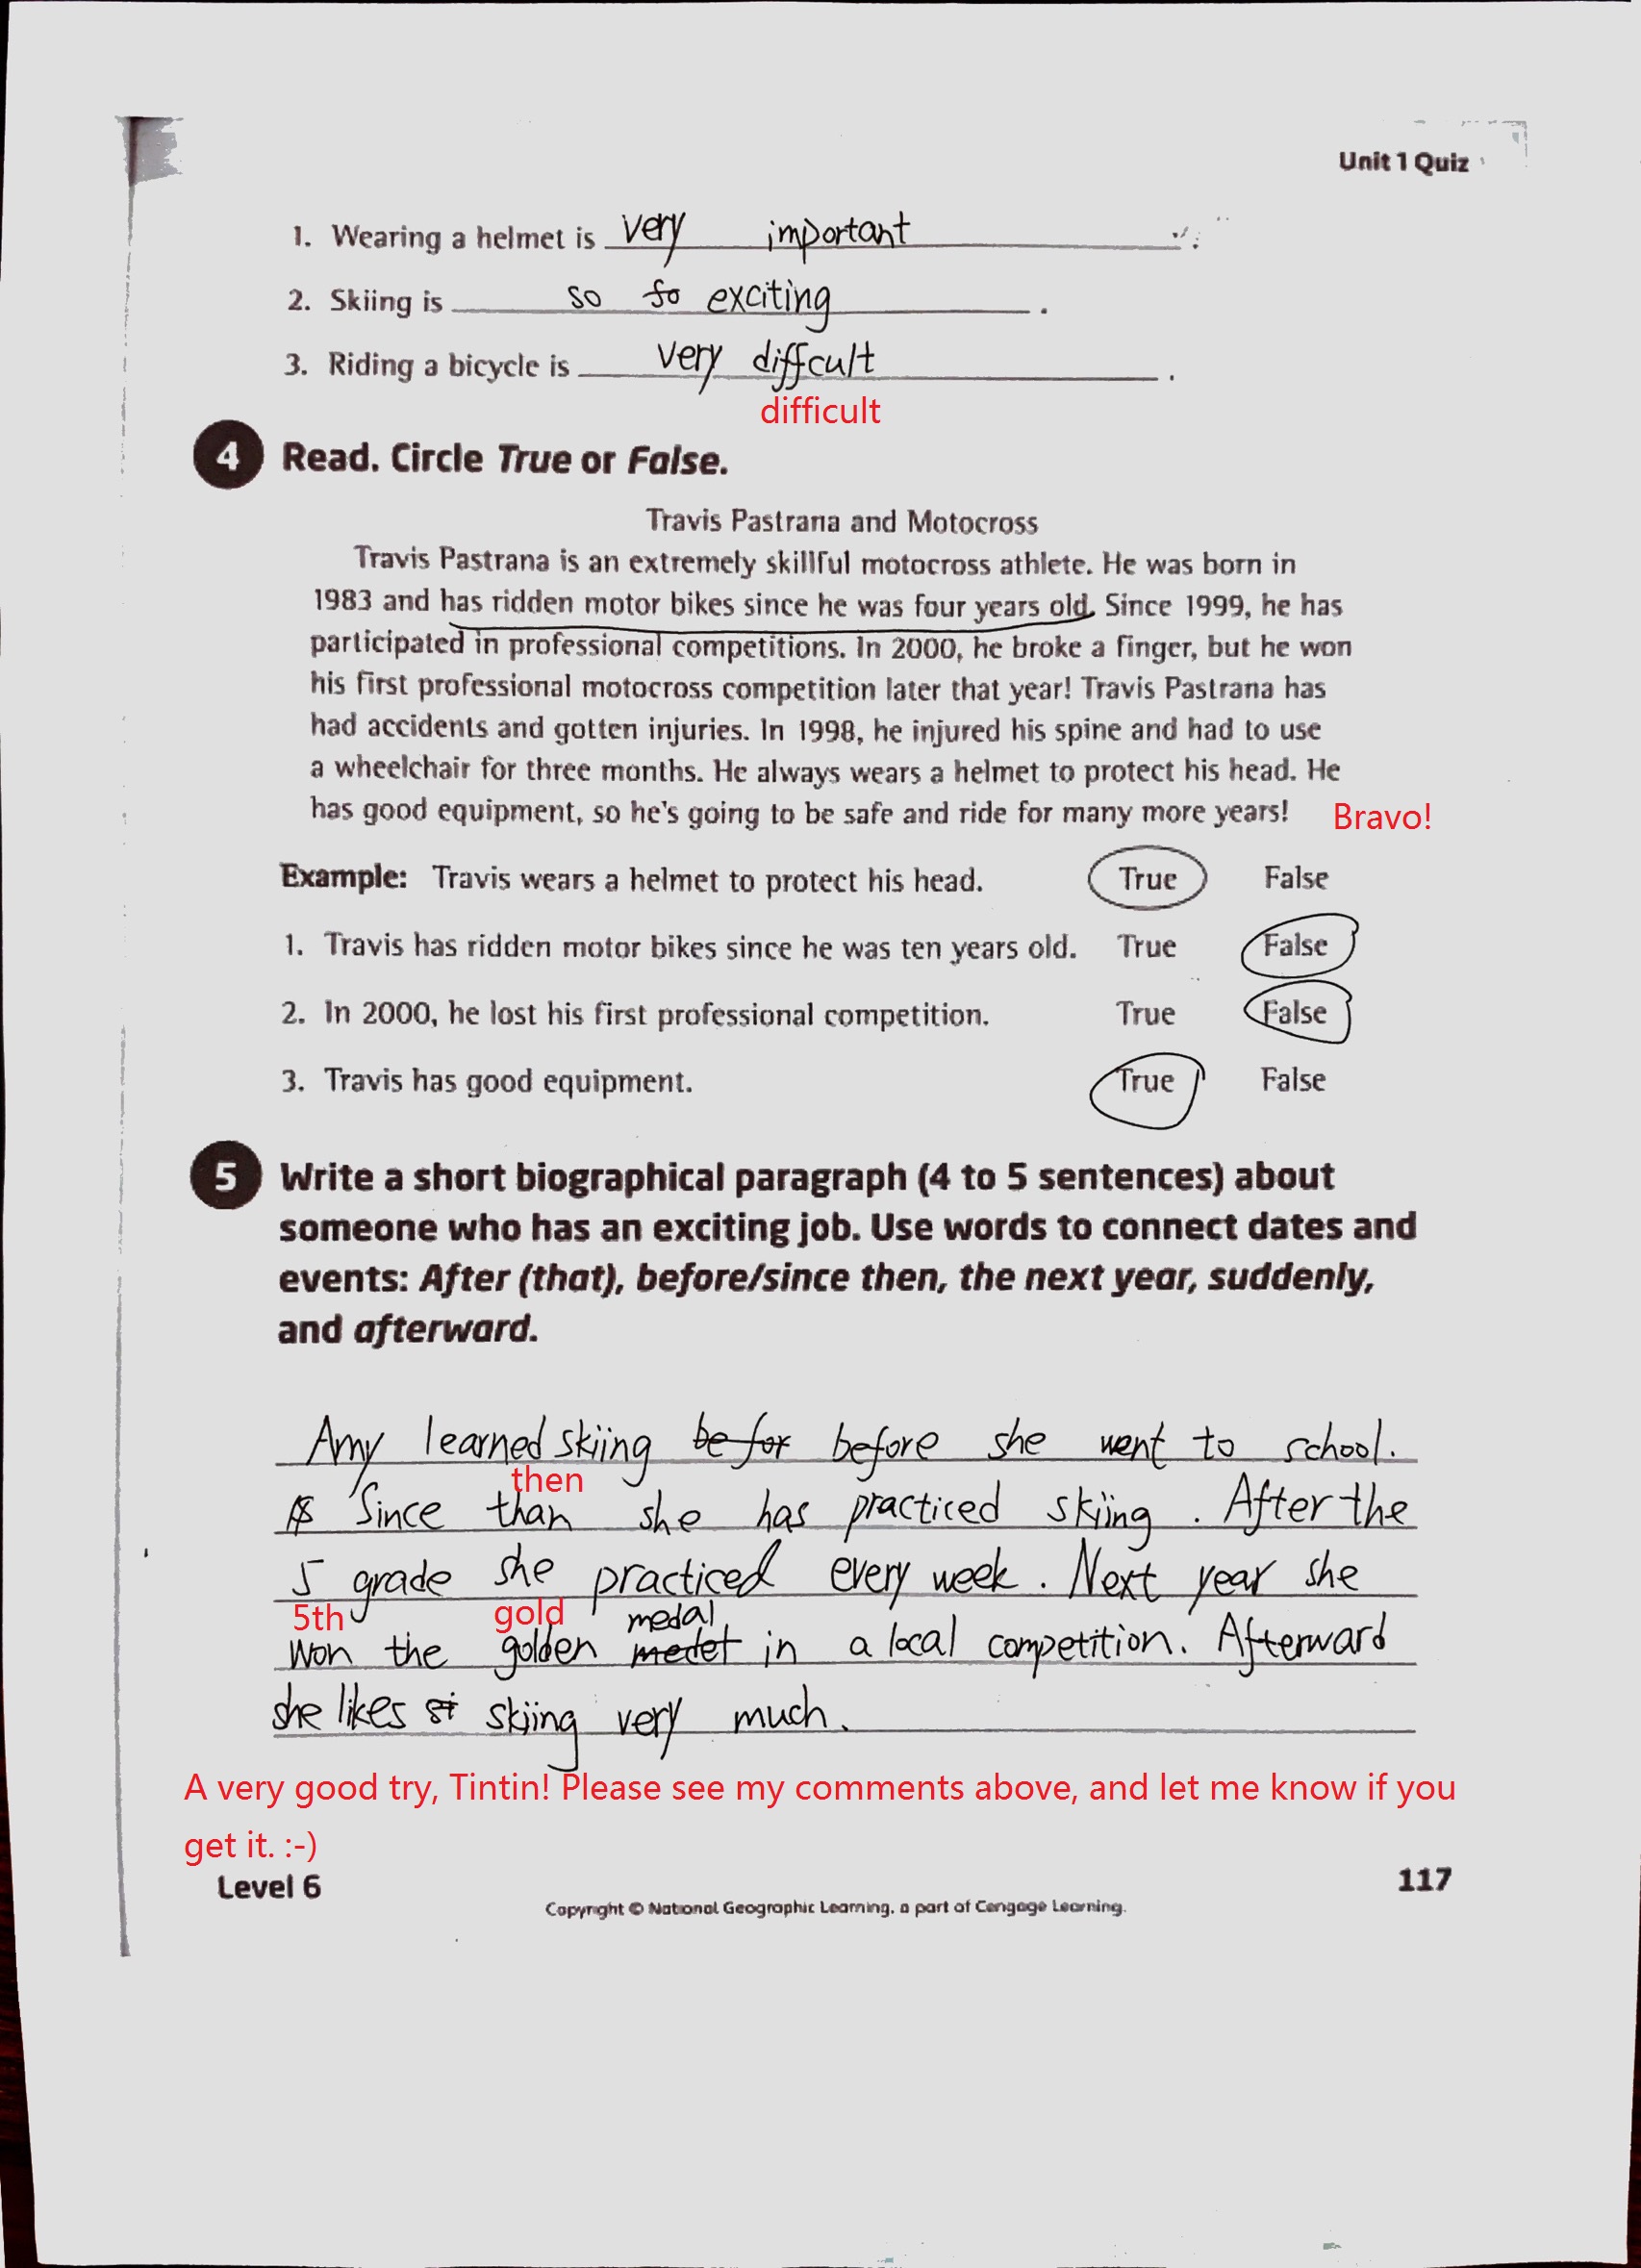 Unit 1 Quiz
1. Wearing a helmet is very important.
2. Skiing is so so exciting.
3. Riding a bicycle is very diffcult.
difficult
4 Read. Circle True or False.
Travis Pastrana and Motocross
Travis Pastrana is an extremely skillful motocross athlete. He was born in
1983 and has ridden motor bikes since he was four years old. Since 1999, he has
participated in professional competitions. In 2000, he broke a finger, but he won
his first professional motocross competition later that year! Travis Pastrana has
had accidents and gotten injuries. In 1998, he injured his spine and had to use
a wheelchair for three months. He always wears a helmet to protect his head. He
has good equipment, so he's going to be safe and ride for many more years! Bravo!
Example: Travis wears a helmet to protect his head. True False
1. Travis has ridden motor bikes since he was ten years old. True False
2. In 2000, he lost his first professional competition. True False
3. Travis has good equipment. True False
5 Write a short biographical paragraph (4 to 5 sentences) about
someone who has an exciting job. Use words to connect dates and
events: After (that), before/since then, the next year, suddenly,
and afterward.
Amy learned skiing befor before she went to school.
then
Since than she has practiced skiing. After the
5 grade she practiced every week. Next year she
5th gold medal
won the golden medet in a local competition. Afterward
she likes skiing very much.
A very good try, Tintin! Please see my comments above, and let me know if you
get it. :-)
Level 6 117
Copyright © National Geographic Learning, a part of Cengage Learning.